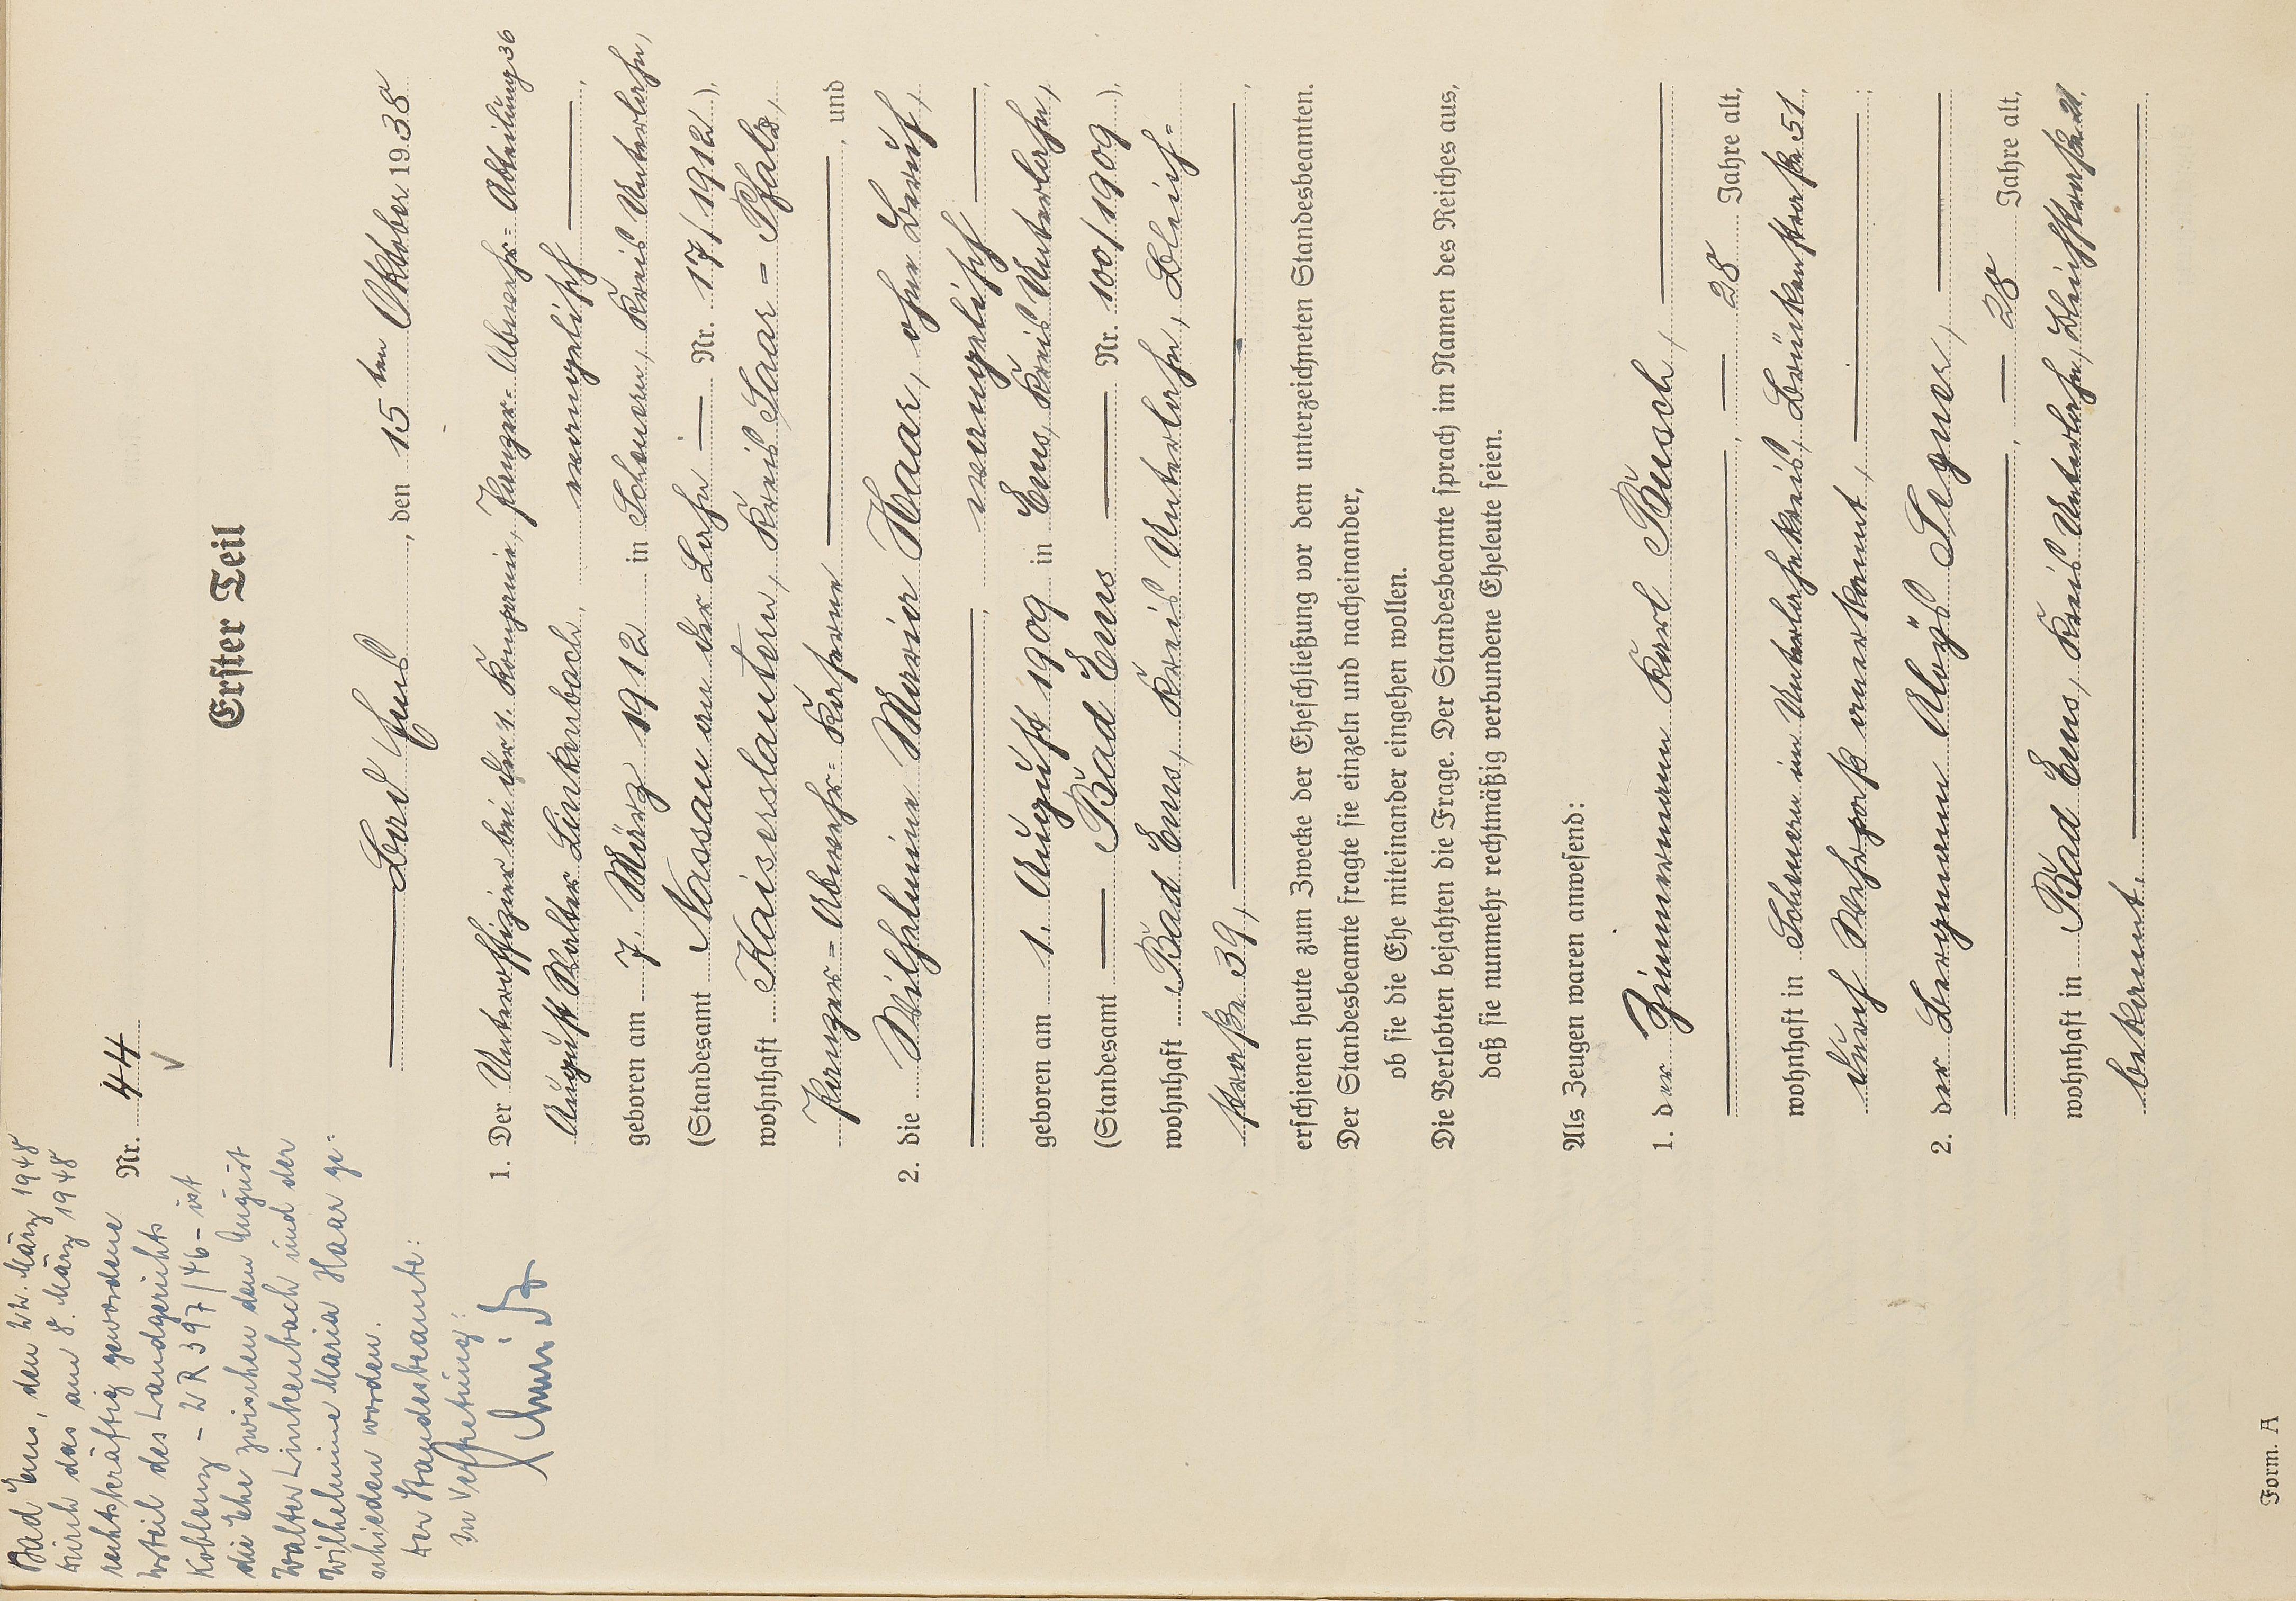 Bad Ems, den 22. März 1948
Durch das am 8. März 1948
rechtskräftig gewordene
Urteil des Landgerichts
Koblenz - 2 R 397/46 - ist
die Ehe zwischen dem August
Walter Linkenbach und der
Wilhelmine Maria Haar ge=
schieden worden.
Der Standesbeamte:
In Vertretung:
Nr. 44
Erster Teil
Bad Ems, den 15ten Oktober 1938
1. Der Unteroffizier bei der 1. Kompanie, Panzer=Abwehr=Abteilung 36
August Walter Linkenbach, evangelisch,
geboren am 7. März 1912 in Scheuern, Kreis Unterlahn,
(Standesamt Nassau an der Lahn Nr. 17/1912),
wohnhaft Kaiserslautern, Kreis Saar=Pfalz,
Panzer=Abwehr=Kaserne, und
2. die Wilhelmine Maria Haar, ohne Beruf,
evangelisch,
geboren am 1. August 1909 in Ems, Kreis Unterlahn,
(Standesamt Bad Ems Nr. 100/1909),
wohnhaft Bad Ems, Kreis Unterlahn, Bleich=
straße 39,
erschienen heute zum Zwecke der Eheschließung vor dem unterzeichneten Standesbeamten.
Der Standesbeamte fragte sie einzeln und nacheinander,
ob sie die Ehe miteinander eingehen wollen.
Die Verlobten bejahten die Frage. Der Standesbeamte sprach im Namen des Reiches aus,
daß sie nunmehr rechtmäßig verbundene Eheleute seien.
Als Zeugen waren anwesend:
1. der Zimmermann Karl Busch,
, 28 Jahre alt,
wohnhaft in Scheuern im Unterlahnkreis, Brückenstraße 51,
durch Wehrpaß anerkannt, ;
2. der Bergmann Aloys Legner,
, 28 Jahre alt,
wohnhaft in Bad Ems, Kreis Unterlahn, Bleichstraße 21,
bekannt.
Form. A